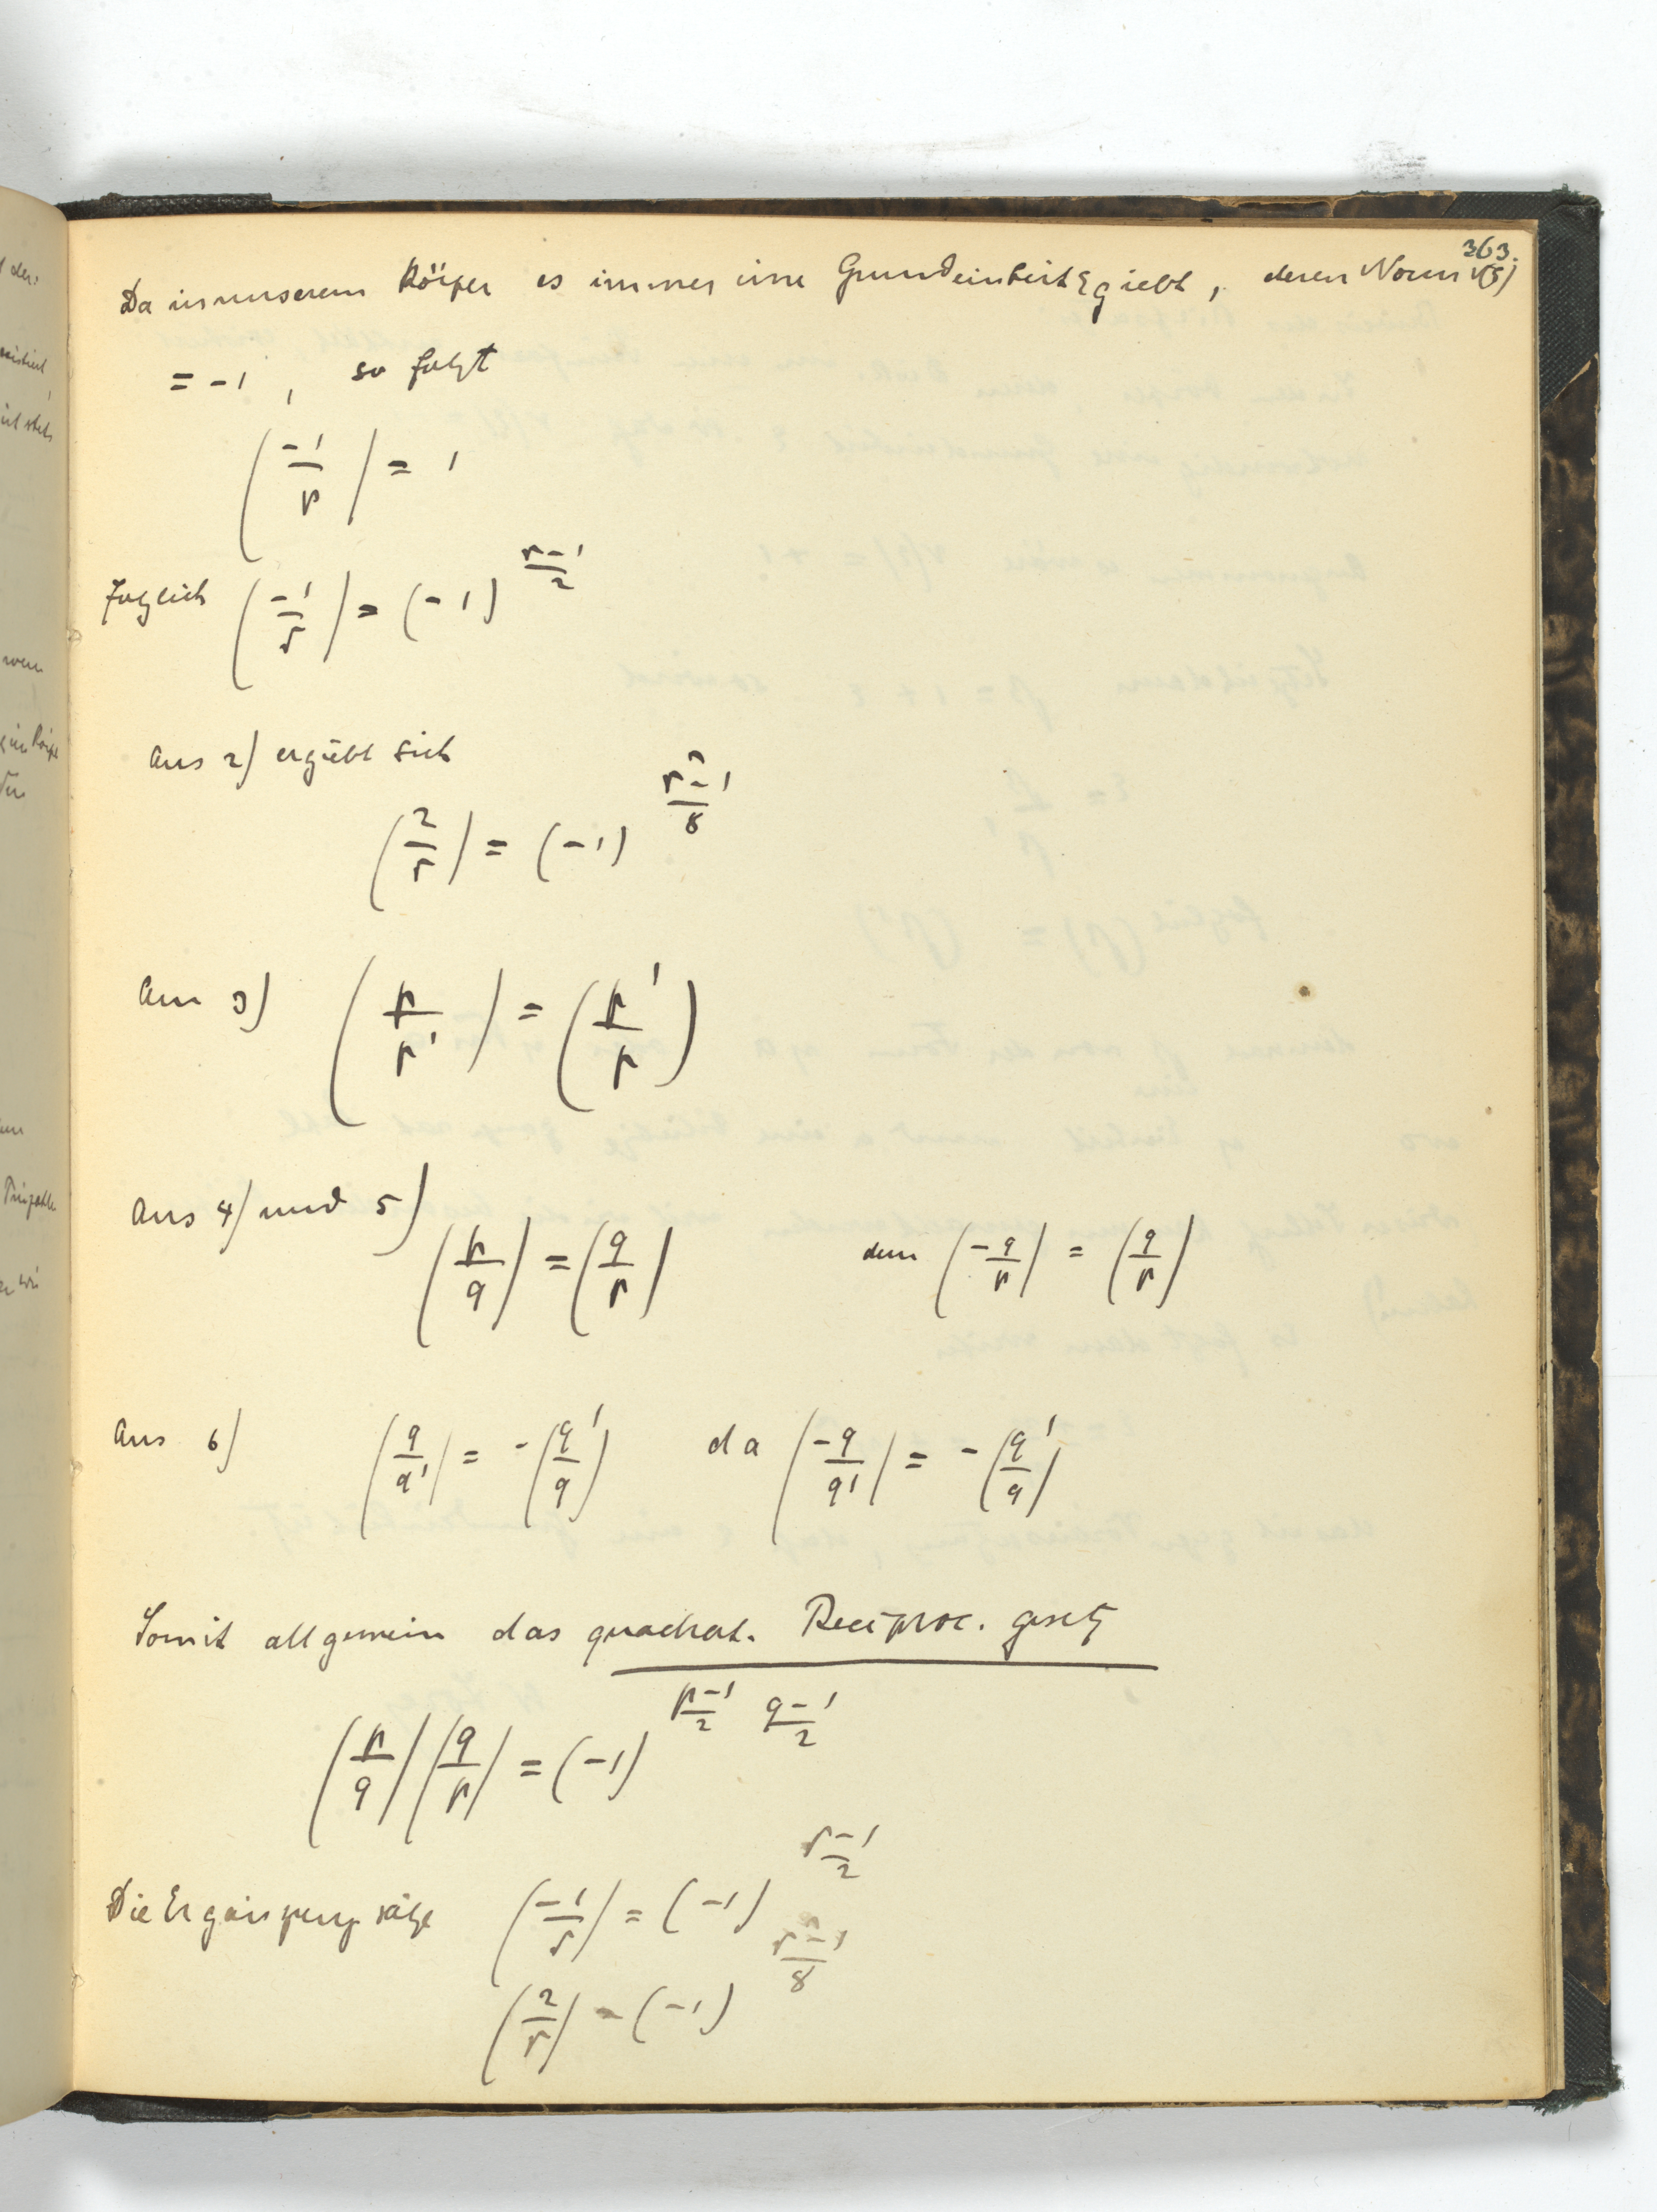 363.
Da in unserem Körper es immer eine Grundeinheit ε giebt, deren Norm N(ε)
= -1, so folgt
(-1/p) = 1
folglich (-1/r) = (-1)^{(r-1)/2}
Aus 2) ergiebt sich
(2/r) = (-1)^{(r²-1)/8}
Aus 3) (p/p') = (p'/p)
Aus 4) und 5) (p/q) = (q/p) denn (-q/p) = (q/p)
Aus 6) (q/q') = -(q'/q) da (-q/q') = -(q'/q)
Somit allgemein das quadrat. Reciproc. gesetz
(p/q)(q/p) = (-1)^{(p-1)/2 (q-1)/2}
Die Ergänzungssätze (-1/r) = (-1)^{(r-1)/2}
(2/r) = (-1)^{(r²-1)/8}